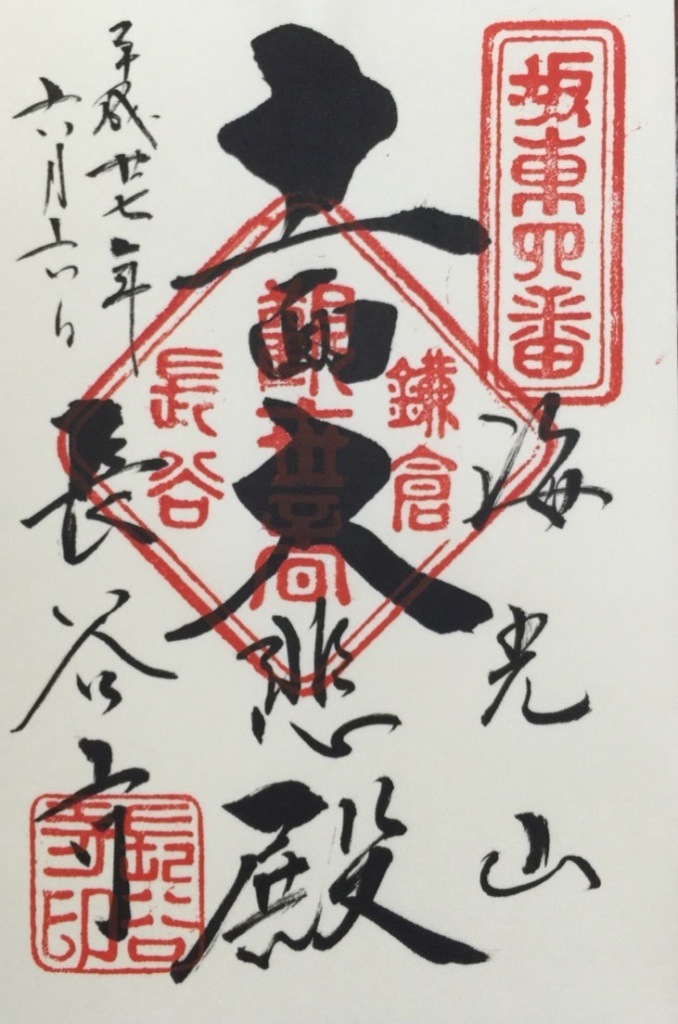 坂東四番
海光山
十一面大悲殿
鎌倉
觀世音
長谷
平成廿七年
六月六日
長谷寺
長谷寺印